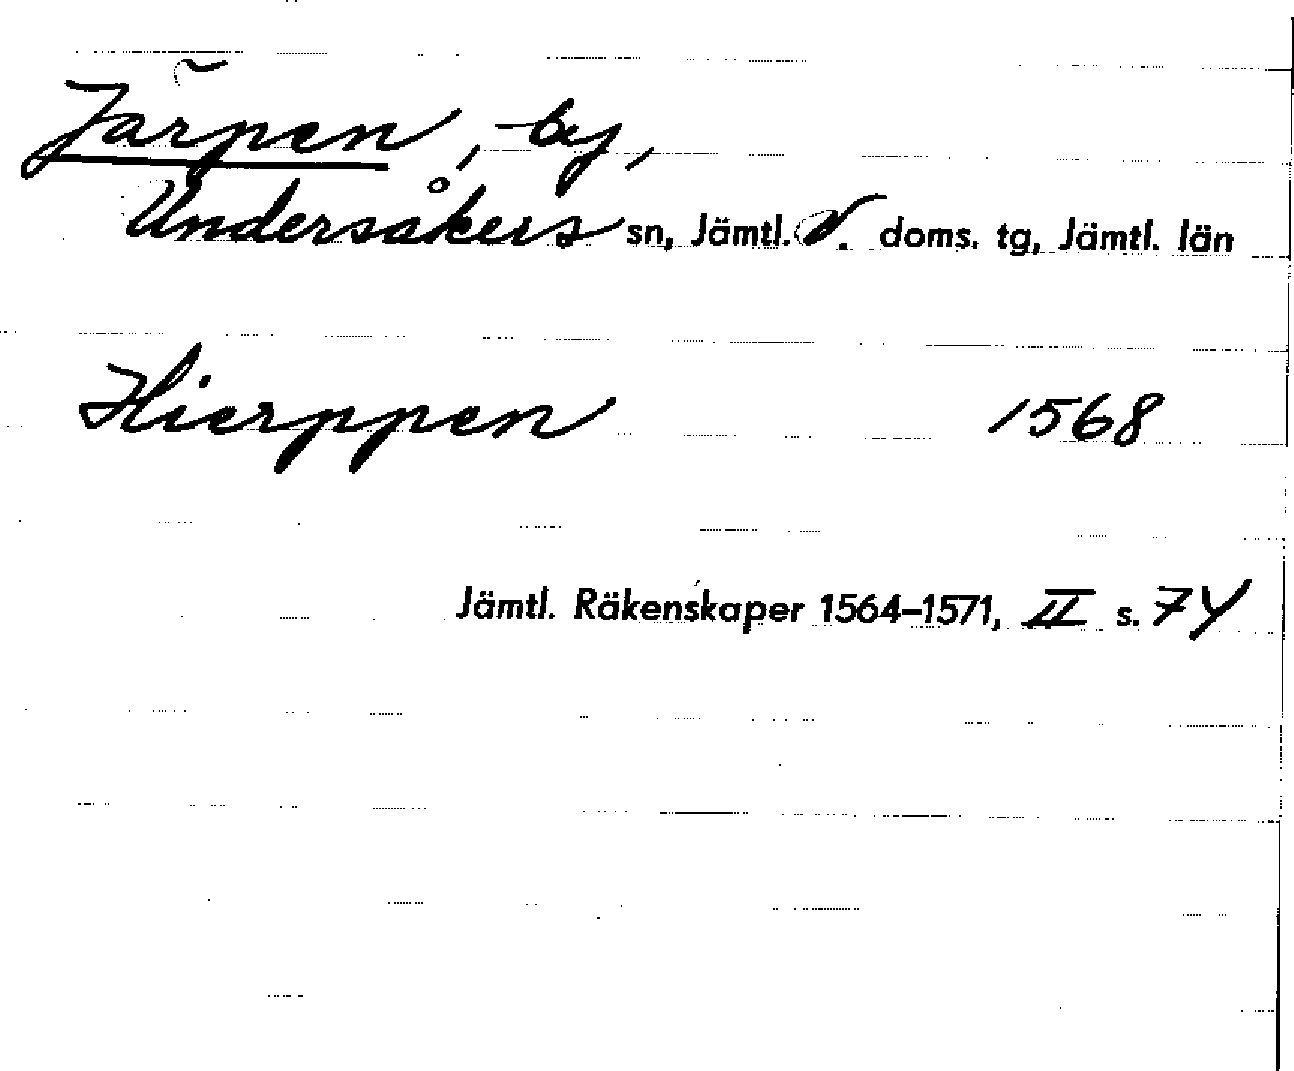 Järpen, by,
Undersåkers sn, Jämtl. V. doms. tg, Jämtl. län
Hierppen 1568
Jämtl. Räkenskaper 1564–1571, II s. 74